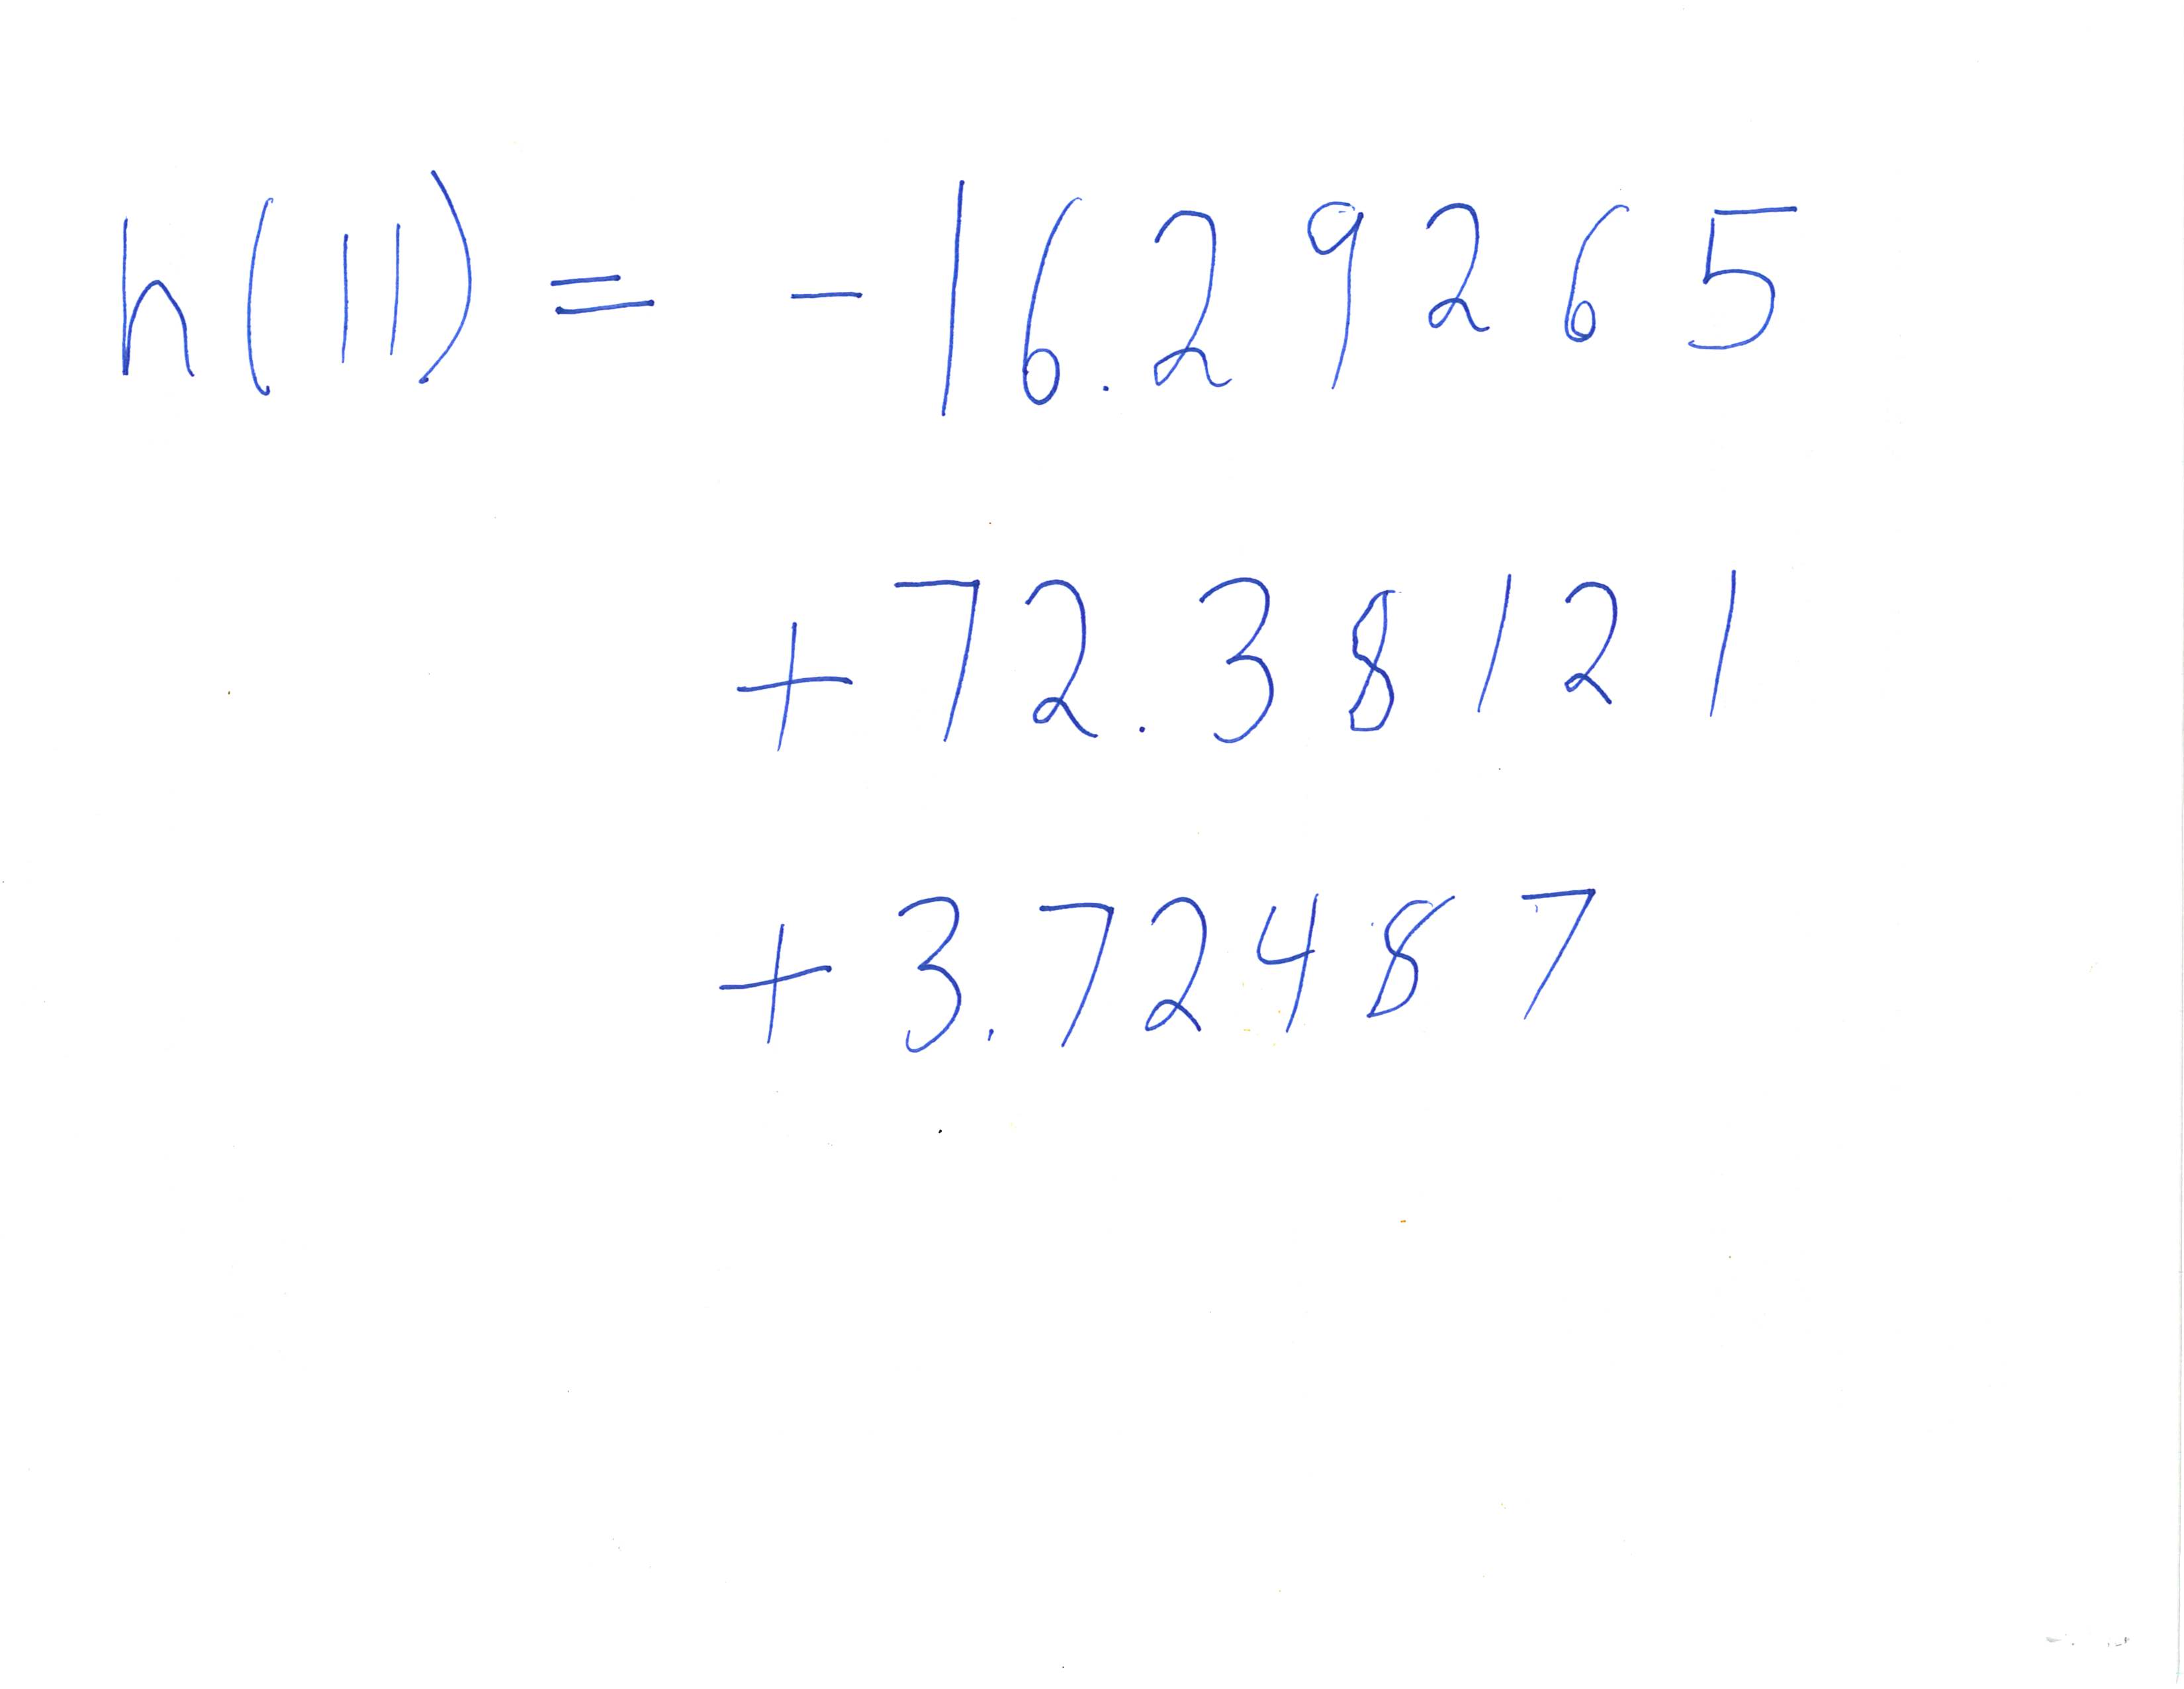 h(11) = -16.29265
+ 72.38121
+ 3.72487